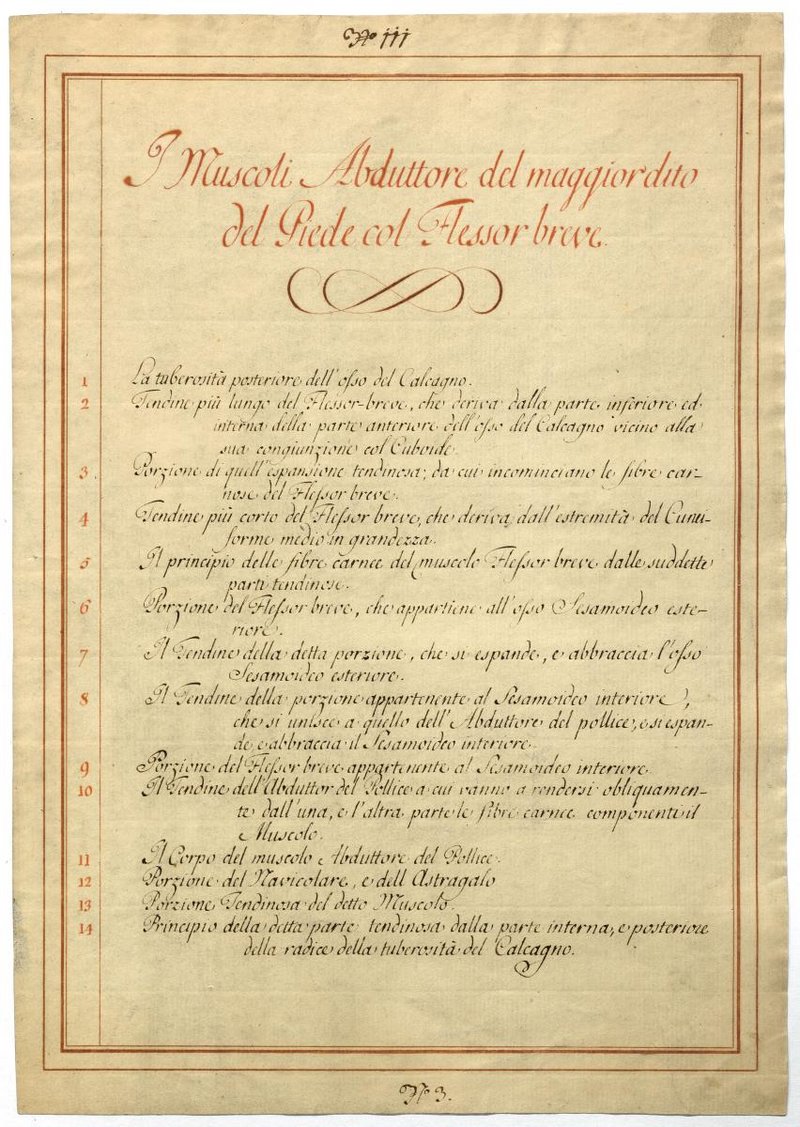 Nº III
I Muscoli Abduttore del maggior dito
del Piede col Flessor breve.
1 La tuberosità posteriore dell'osso del Calcagno.
2 Tendine più lungo del Flessor-breve, che deriva dalla parte inferiore ed
interna della parte anteriore dell'osso del Calcagno vicino alla
sua congiunzione col Cuboide.
3. Porzione di quell'espansione tendinosa; da cui incominciano le fibre car-
nose del Flessor breve.
4 Tendine più corto del Flessor breve, che deriva dall'estremità del Cunei-
forme medio in grandezza.
5 Il principio delle fibre carnee del muscolo Flessor breve dalle suddette
parti tendinose.
6 Porzione del Flessor breve, che appartiene all'osso Sesamoideo este-
riore.
7 Il Tendine della detta porzione, che si espande, e abbraccia l'osso
Sesamoideo esteriore.
8 Il Tendine della porzione appartenente al Sesamoideo interiore,
che si unisce a quello dell'Abduttore del pollice, e si espan-
de, e abbraccia il Sesamoideo interiore.
9 Porzione del Flessor breve appartenente al Sesamoideo interiore.
10 Il Tendine dell'Abduttor del Pollice a cui vanno a rendersi obliquamen-
te dall'una, e l'altra parte le fibre carnee componenti il
Muscolo.
11 Il Corpo del muscolo Abduttore del Pollice.
12 Porzione del Navicolare, e dell Astragalo
13 Porzione Tendinosa del detto Muscolo.
14 Principio della detta parte tendinosa dalla parte interna, e posteriore
della radice della tuberosità del Calcagno.
Nº 3.